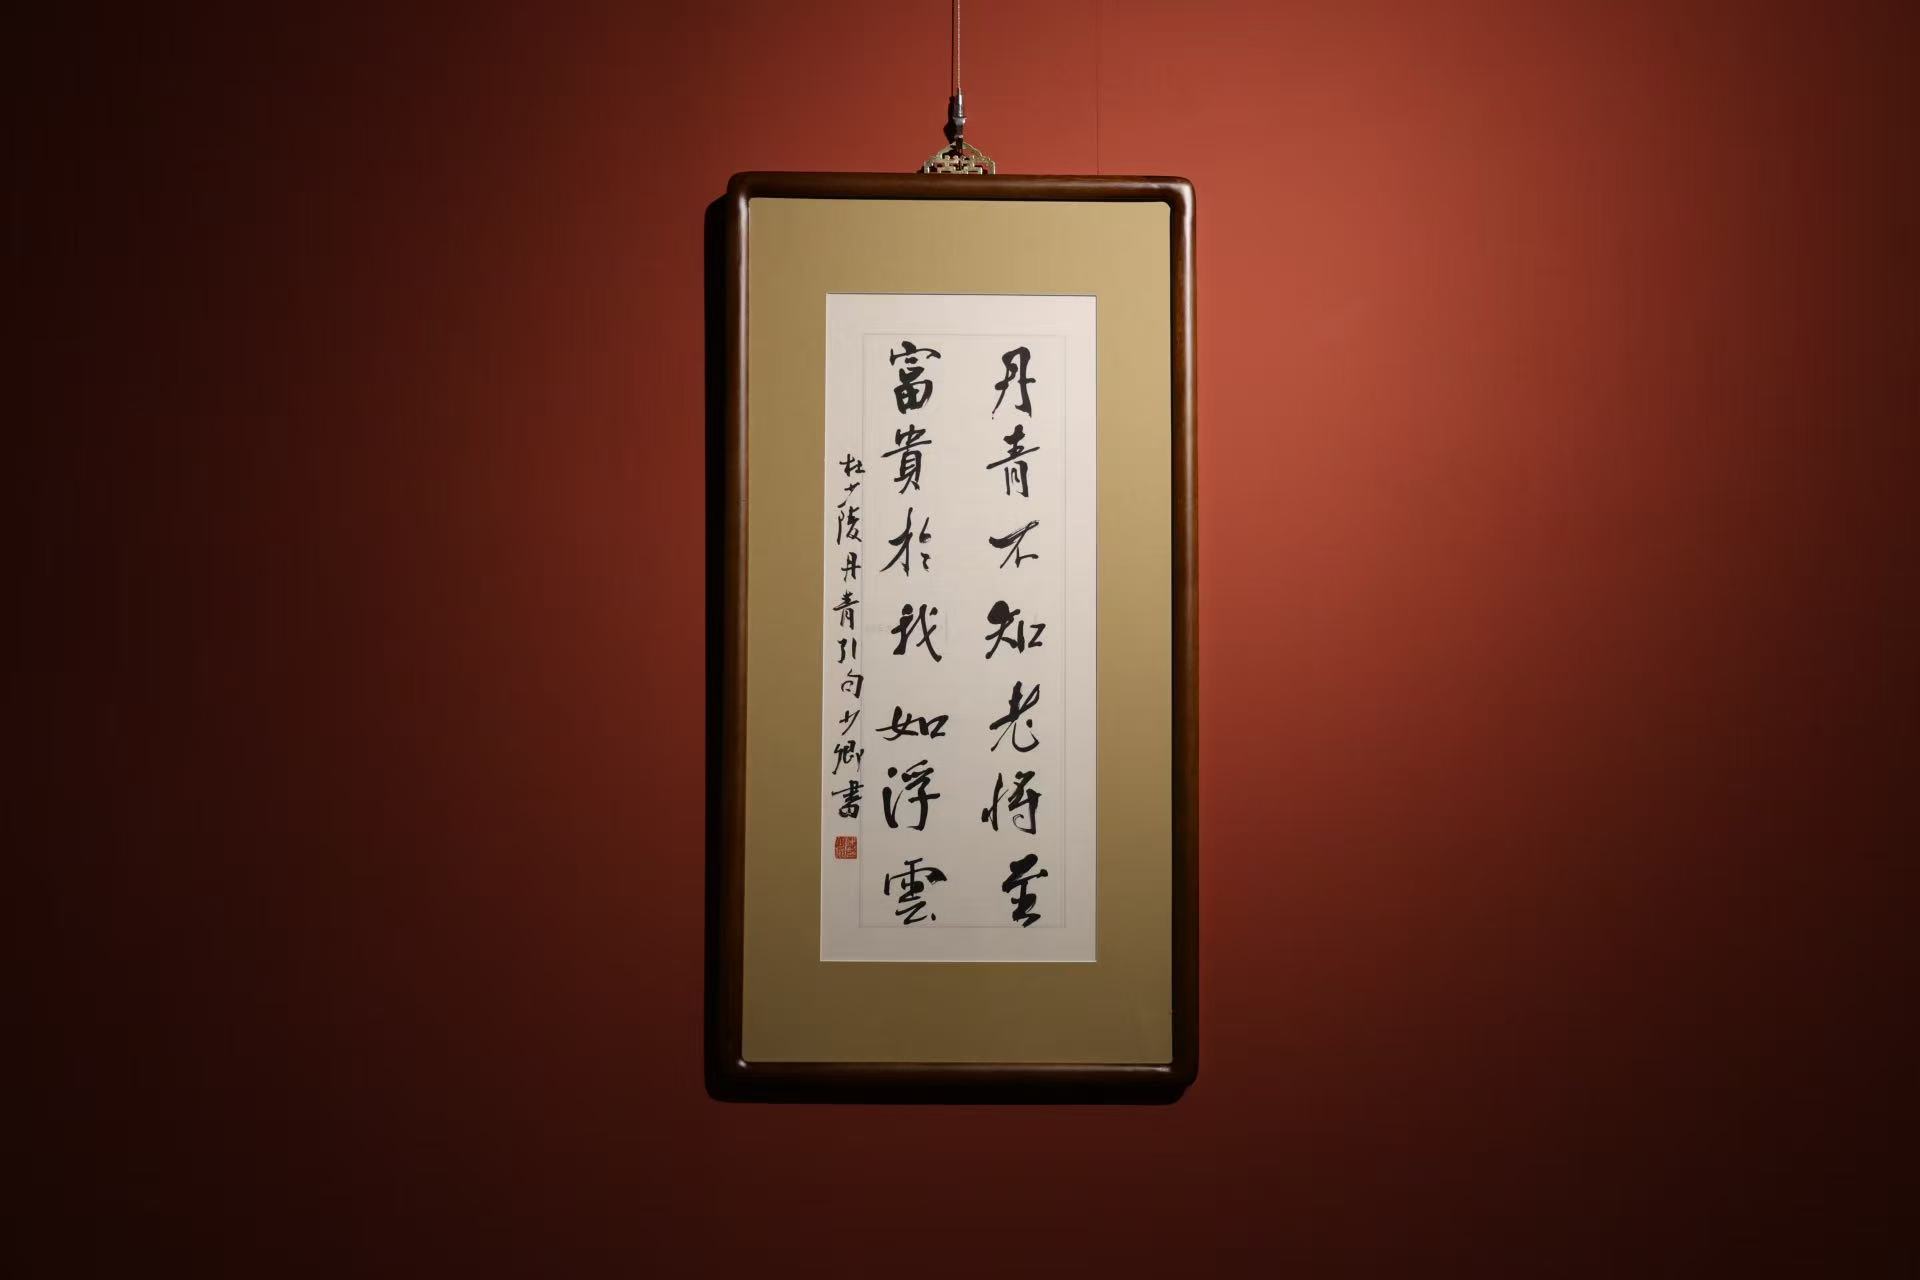 丹青不知老將至
富貴於我如浮雲
杜少陵丹青引句少卿書